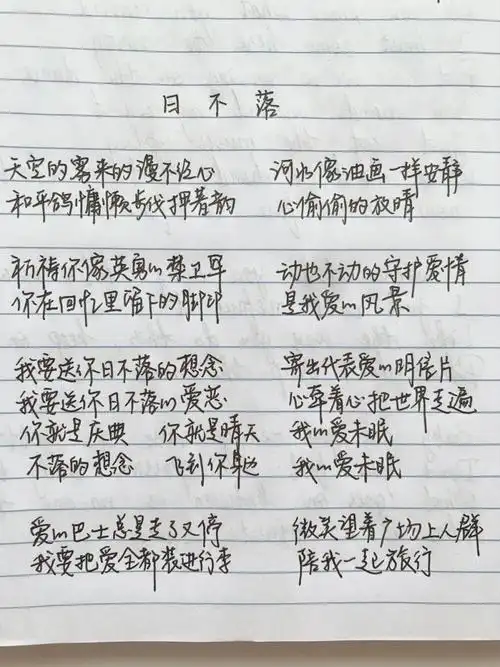 日不落
天空的雾来的漫不经心 河水像油画一样安静
和平鸽慵懒步伐押着韵 心偷偷的放晴
祈祷你像英勇的禁卫军 动也不动的守护爱情
你在回忆里留下的脚印 是我爱的风景
我要送你日不落的想念 寄出代表爱的明信片
我要送你日不落的爱恋 心牵着心把世界走遍
你就是庆典 你就是晴天 我的爱未眠
不落的想念 飞到你身边 我的爱未眠
爱的巴士总是走了又停 微笑望着广场上人群
我要把爱全都装进行李 陪我一起旅行